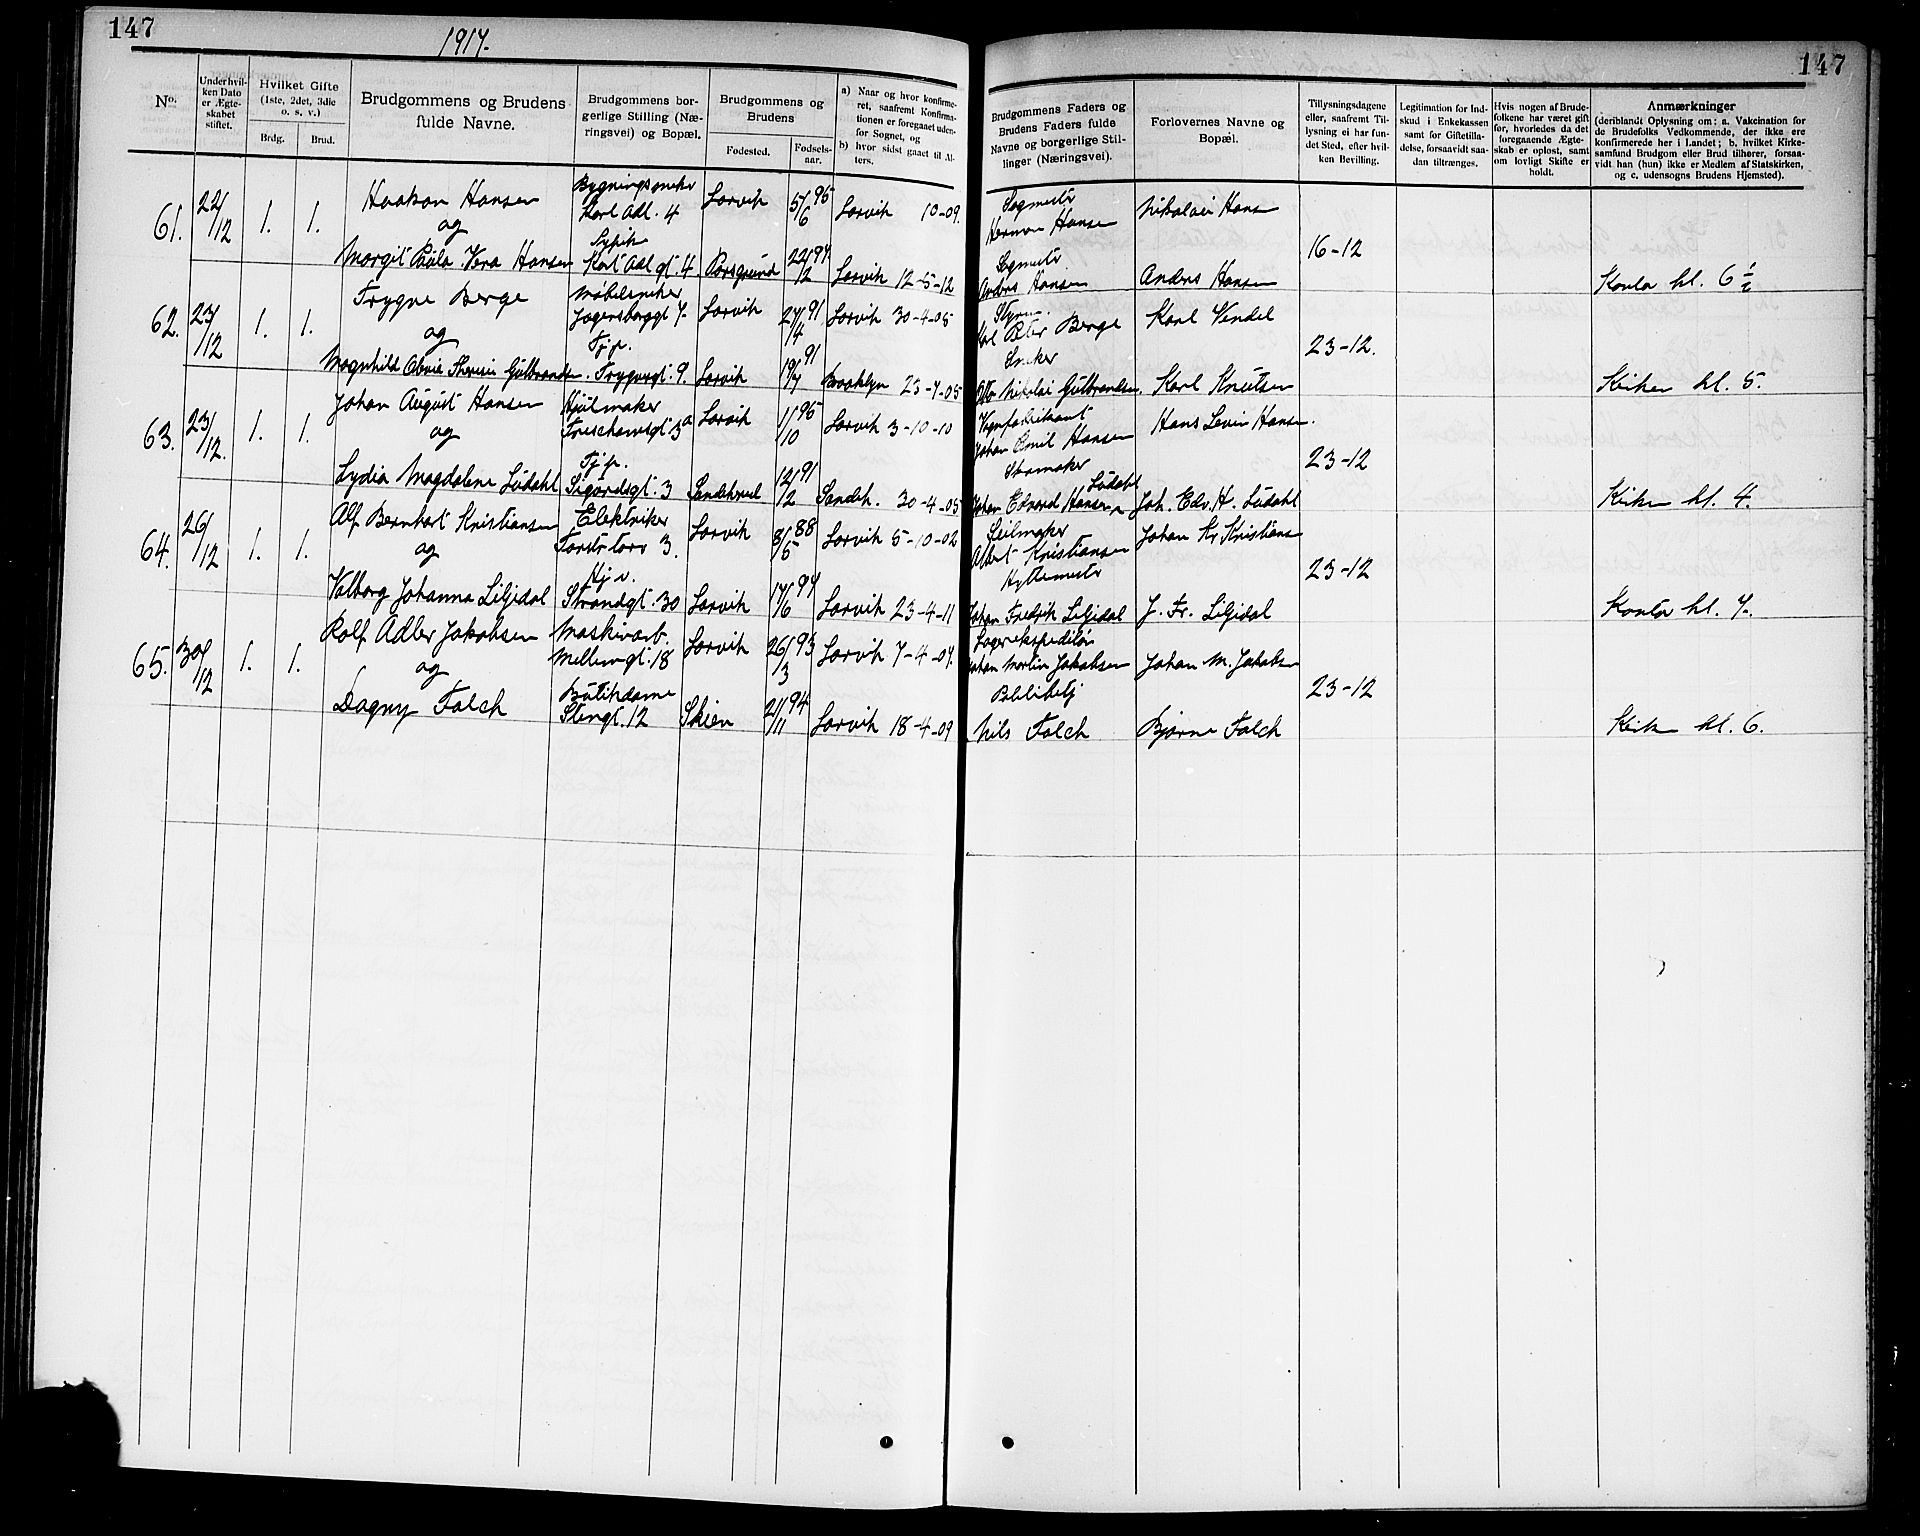 147
1917.
No.
Under hvil-
ken Dato
er Ægte-
skabet
stiftet.
Hvilket Gifte
(1ste, 2det, 3die
o. s. v.)
Brdg.
Brud.
Brudgommens og Brudens
fulde Navne.
Brudgommens bor-
gerlige Stilling (Næ-
ringsvei) og Bopæl.
Brudgommens og
Brudens
Fødested.
Fødsels-
aar.
a) Naar og hvor konfirme-
ret, saafremt Konfirma-
tionen er foregaaet uden-
for Sognet, og
b) hvor sidst gaaet til Al-
ters.
61.
22/12
1.
1.
Haakon Hansen
og
Margit Paula Vera Hansen
Bygningssneker
Karl Adl. 4
Sypike
Karl Adl gt. 4
Larvik
Porsgrund
5/6 95
22/12 94
Larvik 10-09.
Larvik 12-5-12
62.
23/12
1.
1.
Trygve Berge
og
Magnhild Gulbrandsen.
Møbelsneker
Jegersborggt 7
Tj.p.
Trygvegt. 9.
Larvik
Larvik
27/4 91
19/7 91
Larvik 30-4-05
Brooklyn 23-7-05
63.
23/12.
1.
1.
Johan August Hansen
og
Lydia Magdalene Lüdahl
Hjulmaker
Treschowsgt. 3a
Tj.p.
Sigurdsgt. 3
Larvik
Sandeherred
1/10 95
12/2 91
Larvik 3-10-10
Sandeh. 30-4-05
64.
26/12
1.
1.
Alf Bernhart Kristiansen
og
Valborg Johanna Liljedal
Elektriker
Torstr torv 3.
Hj. v.
Strandgt. 30
Larvik
Larvik
8/5 88
17/6 94
Larvik 5-10-02
Larvik 23-4-11
65.
30/12
1.
1.
Rolf Adler Jakobsen
og
Dagny Falch
Maskinarb.
Mellemgt. 18
Butikdame
Stengt. 12
Larvik
Skien
26/3 93
21/11 94
Larvik 7-4-07.
Larvik 18-4-09
147
Brudgommens Faders og
Brudens Faders fulde
Navne og borgerlige Stil-
linger (Næringsvei).
Forlovernes Navne og
Bopæl.
Tillysningsdagene
eller, saafremt Til-
lysning ei har fun-
det Sted, efter hvil-
ken Bevilling.
Legitimation for Ind-
skud i Enkekassen
samt for Giftetilla-
delse, forsaavidt saa-
dan tiltrænges.
Hvis nogen af Brude-
folkene har været gift
før, hvorledes da det
foregaaende Ægte-
skab er opløst, samt
om lovligt Skifte er
holdt.
Anmærkninger
(deriblandt Oplysning om: a. Vakcination for
de Brudefolks Vedkommende, der ikke ere
konfirmerede her i Landet; b. hvilket Kirke-
samfund Brudgom eller Brud tilhører, forsaa-
vidt han (hun) ikke er Medlem af Statskirken,
og c. udensogns Brudens Hjemsted).
Sagmestr
Herman Hansen
Sagmestr
Anders Hansen
Nikolai Hansen
Anders Hansen
16-12
Kontor kl. 6 1/2
Peter Berge
Sneker
Otto Nikolai Gulbrandsen.
Karl Vendel
Karl Knutsen
23-12.
Kirken kl. 5.
Vognfabrikant
Johan Emil Hansen
Skomaker
Johan Edvard Hansen Lüdahl
Hans Levin Hansen.
Joh. Edv. H. Lüdahl
23-12
Kirken kl. 4.
Seilmaker
Albert Kristiansen
Hyttemestr
Johan Fredrik Liljedal
Johan Kr Kristians
J. Fr. Liljedal
23-12
Kontor kl. 7.
Lagerekspeditør
Johan Martin Jakobsen
Nils Falch
Johan M. Jakobsen
Bjarne Falch
23-12
Kirken kl. 6.